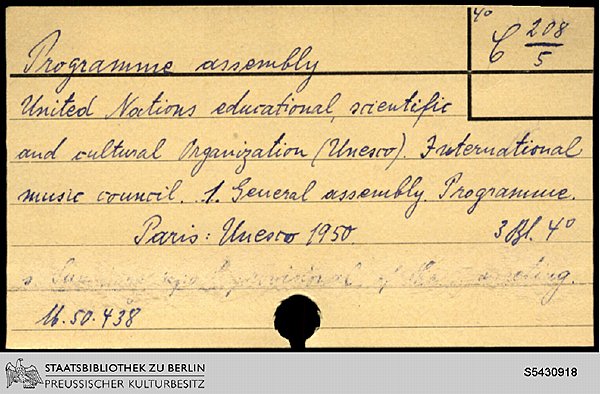 Programme assembly
4° C 208/5
United Nations educational, scientific
and cultural Organization (Unesco). International
music council. 1. General assembly. Programme.
Paris: Unesco 1950. 3 Bl. 4°
provisional of the
16.50.438
STAATSBIBLIOTHEK ZU BERLIN
PREUSSISCHER KULTURBESITZ
S5430918